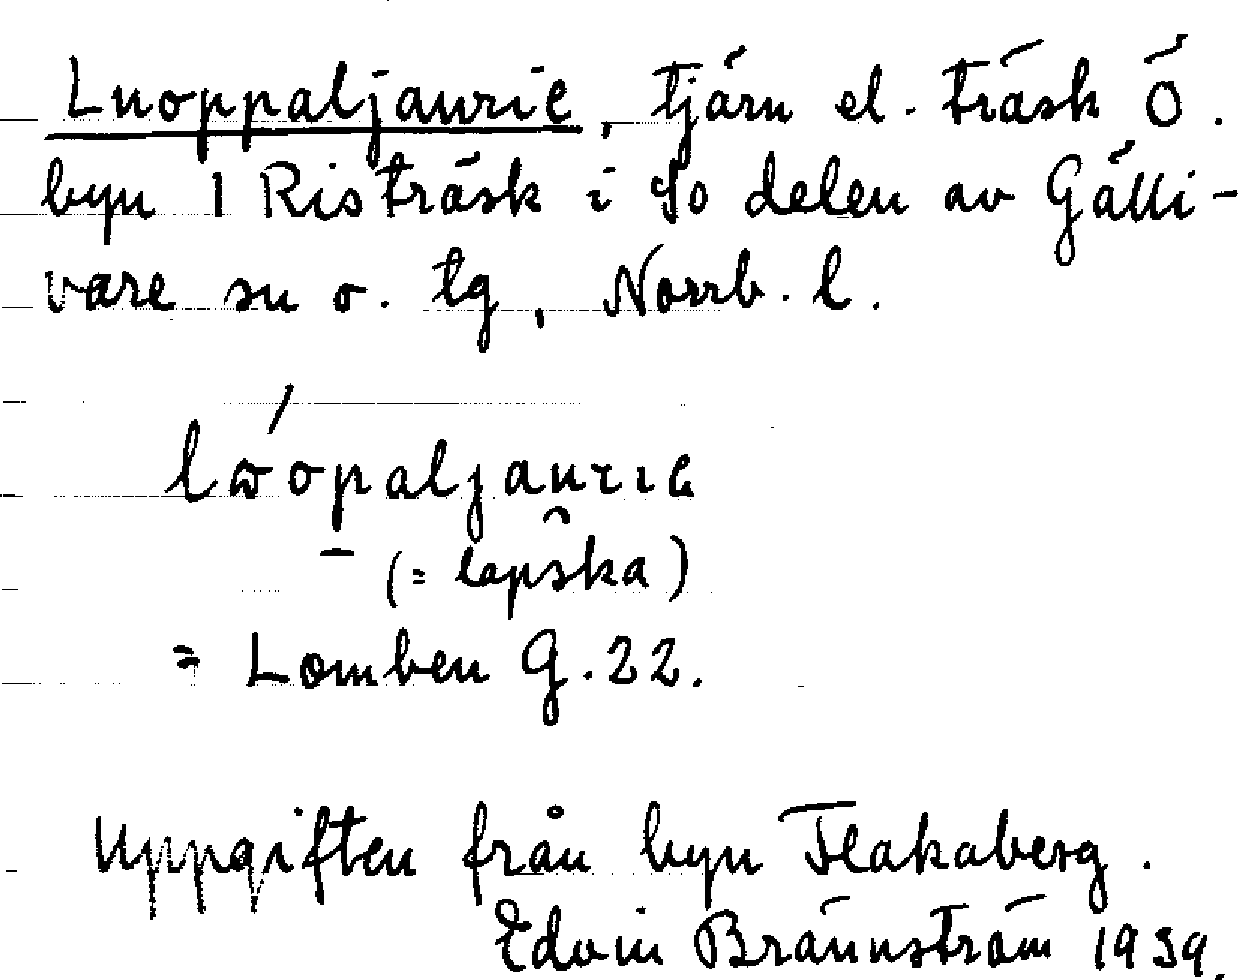 Luoppaljaurie, tjärn el. träsk Ö.
byn 1 Risträsk i So delen av Gälli-
vare sn o. tg, Norrb. l.
(= lapska)
= Lomben G. 22.
Uppgiften från byn Flakaberg.
Edvin Brännström 1939.